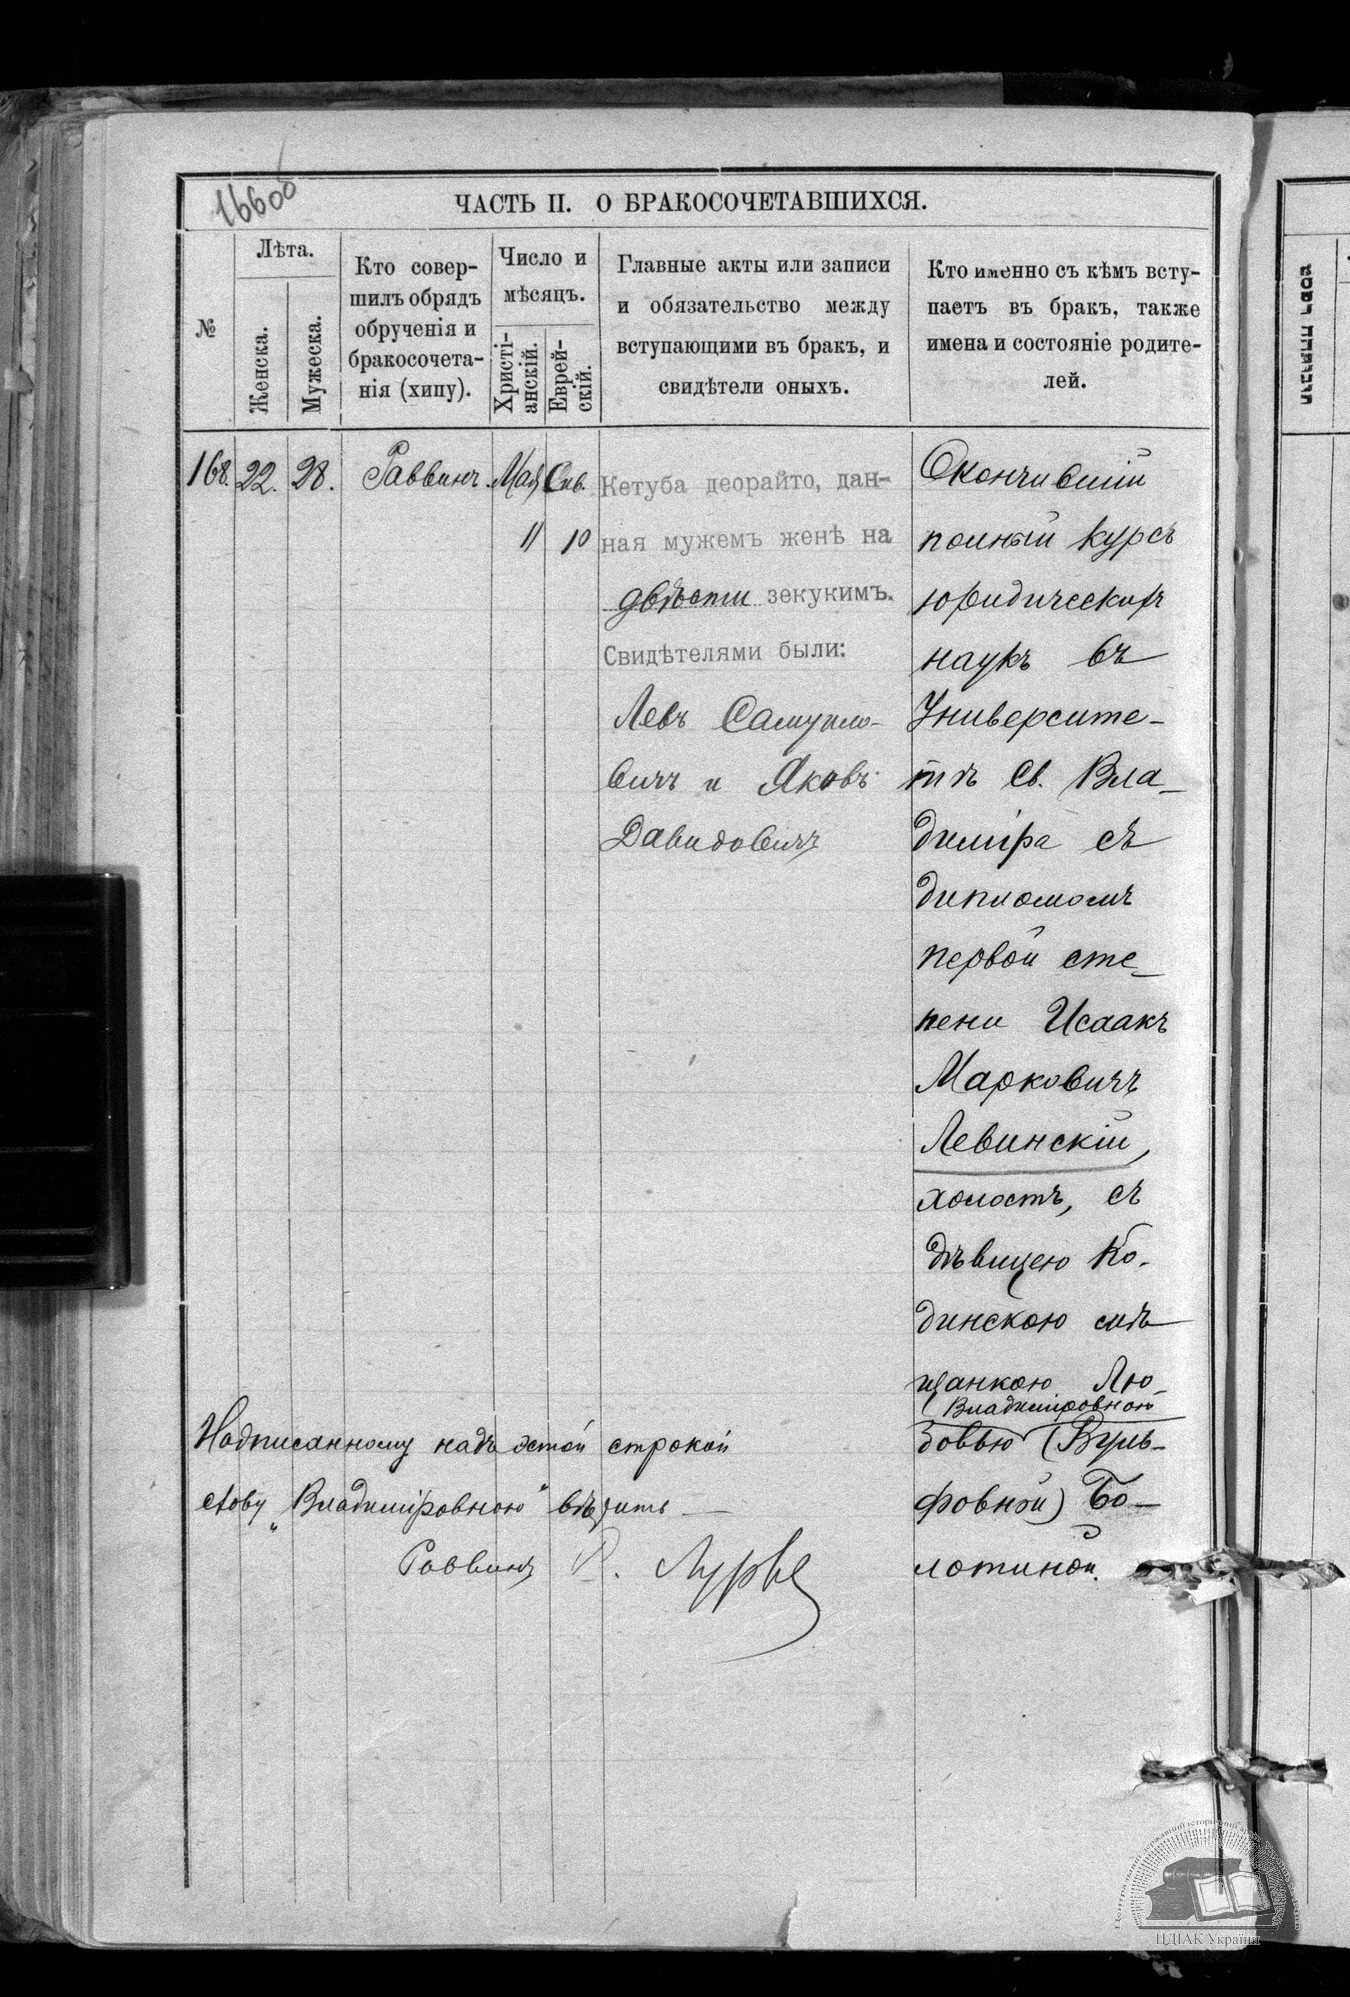 16600
ЧАСТЬ II. О БРАКОСОЧЕТАВШИХСЯ.
№
Лѣта.
Женска.
Мужеска.
Кто совер-
шилъ обрядъ
обрученія и
бракосочета-
нія (хипу).
Число и
мѣсяцъ.
Христі-
анскій.
Еврей-
скій.
Главные акты или записи
и обязательство между
вступающими въ бракъ, и
свидѣтели оныхъ.
Кто именно съ кѣмъ всту-
паетъ въ бракъ, также
имена и состояніе родите-
лей.
168. 22. 28. Раввинъ. Мая Сив.
11 10
Кетуба деорайто, дан-
ная мужемъ женѣ на
двѣсти зекукимъ.
Свидѣтелями были:
Левъ Самуило-
вичъ и Яковъ
Давидовичъ
Окончившій
полный курсъ
юридическихъ
наукъ въ
Университе-
тѣ Св. Вла-
диміра съ
дипломомъ
первой сте-
пени Исаакъ
Марковичъ
Левинскій,
холостъ, съ
дѣвицею Ко-
динскою мѣ
щанкою Лю-
Владиміровною
бовью (Вуль-
фовной) Бо-
лотиной.
Надписанному надъ этой строкой
слову „Владиміровною" вѣрить —
Раввинъ Лурье
ЦДІАК України